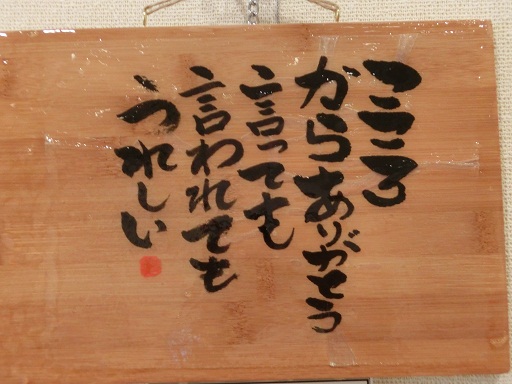 こころ
からありがとう
言っても
言われても
うれしい